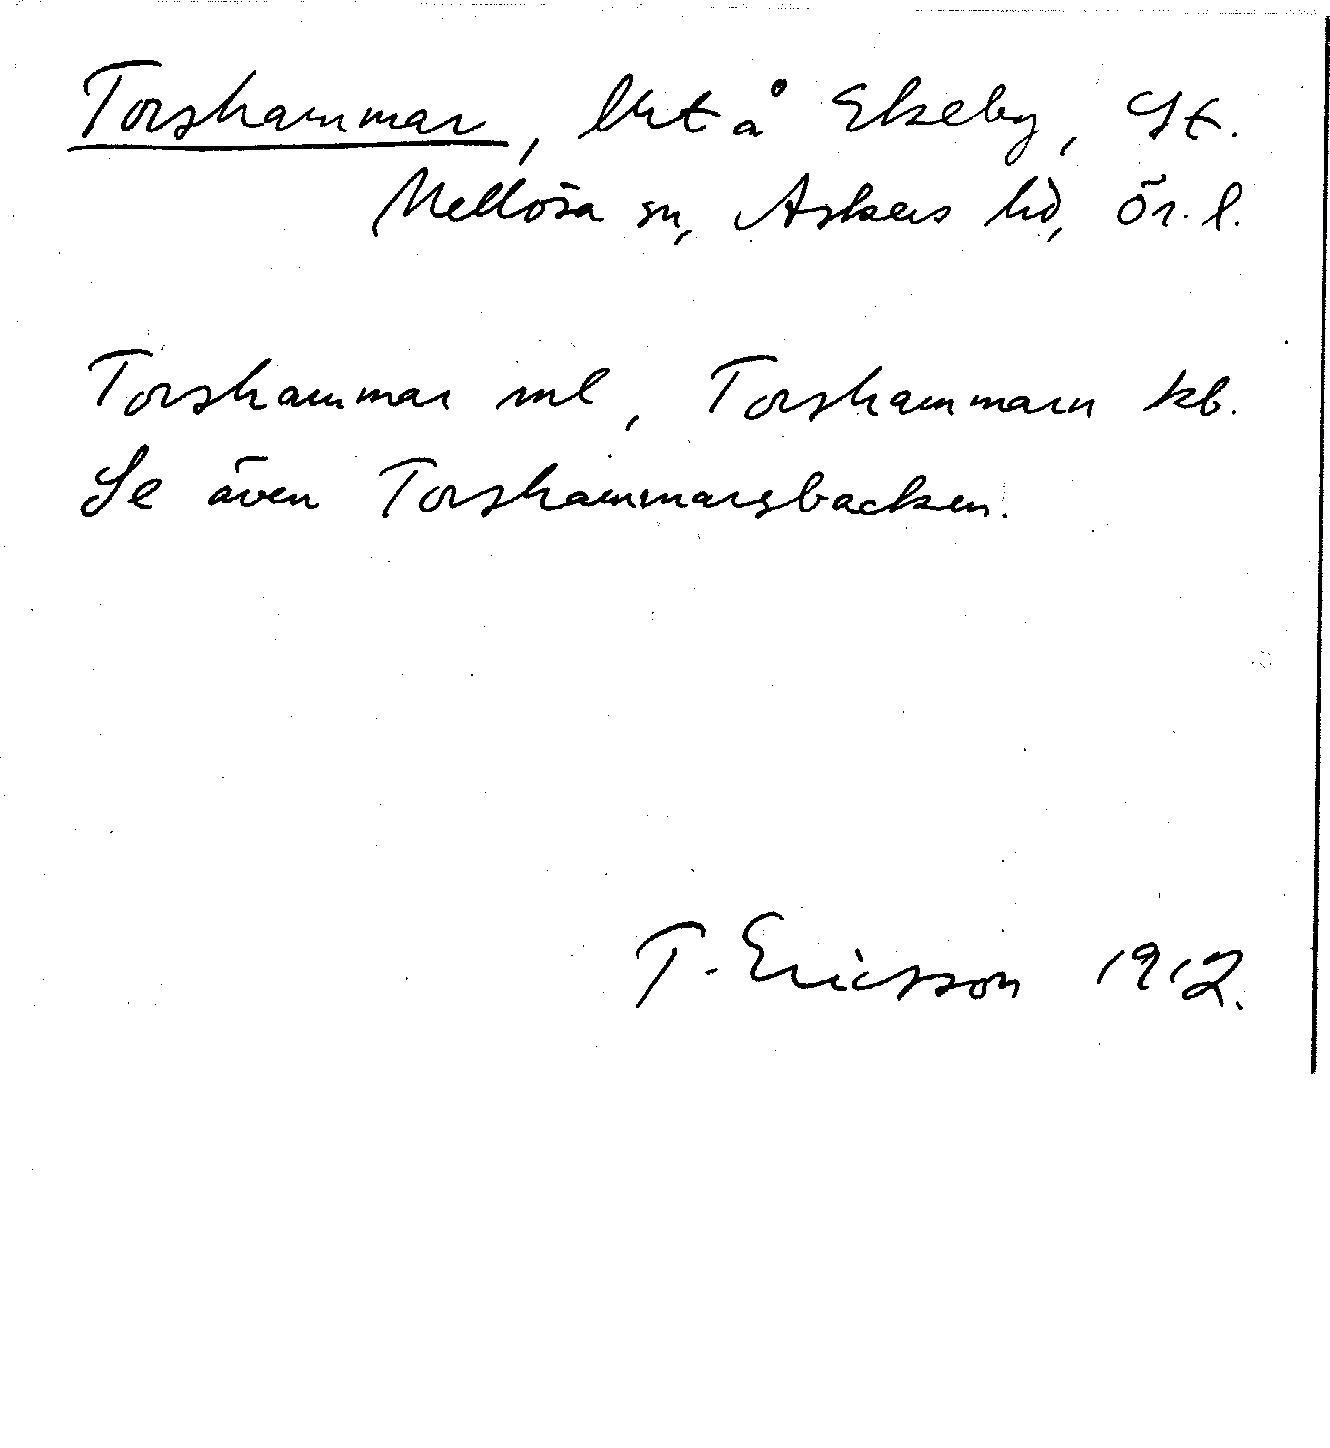 Torshammar, lht å Ekeby, St.
Mellösa sn, Askers hd, Ör. l.
Torshammar ml, Torshammarn kb.
Se även Torshammarsbacken.
T. Ericsson 1912.